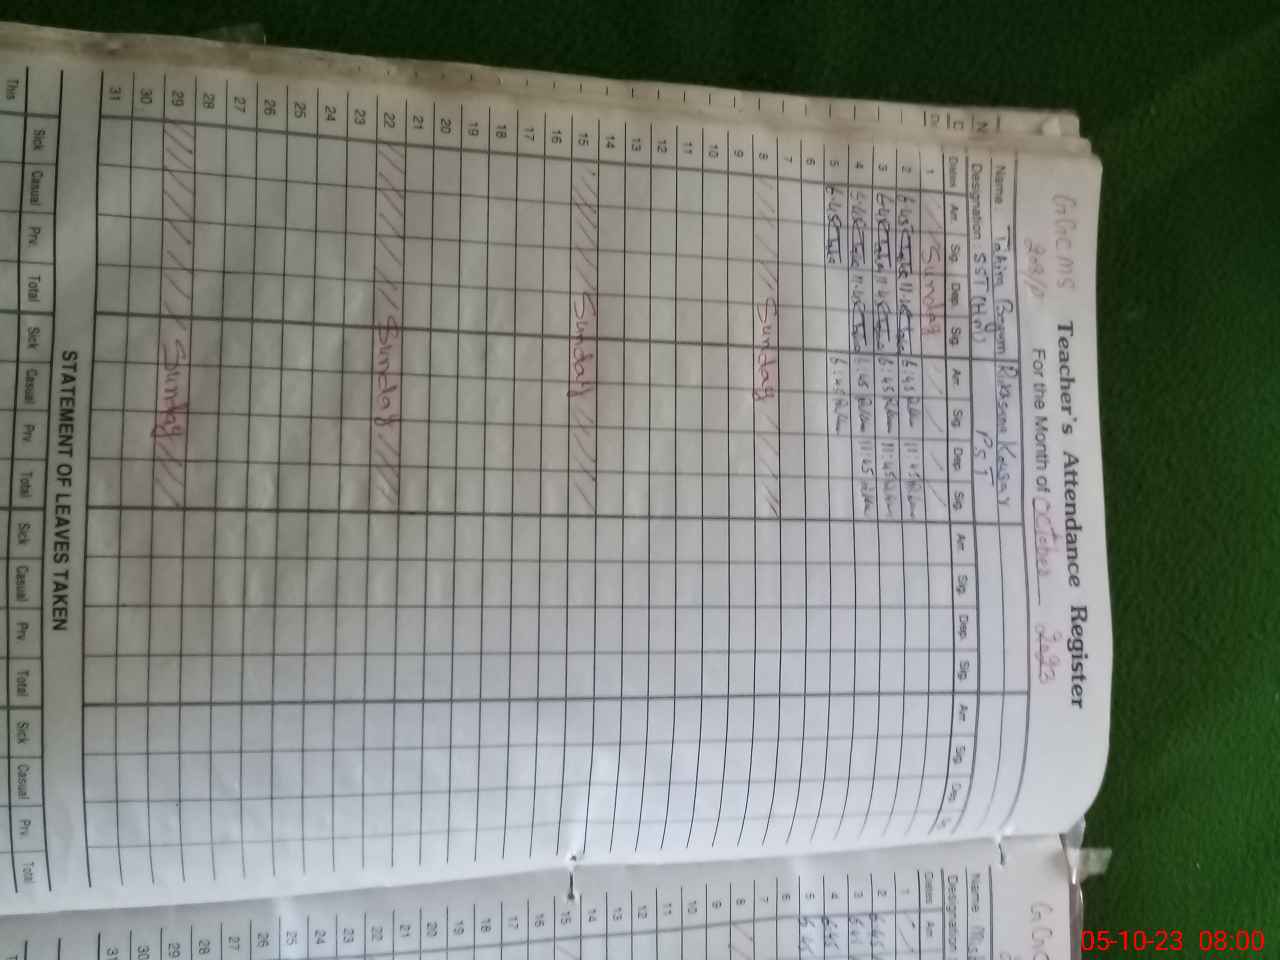 GGCMS Teacher's Attendance Register
For the Month of October 2023
Name: Tahira Begum Rukhsana Kousar
Designation SST (H.M) PST
Dates Arr. Sig. Dep. Sig. Arr. Sig. Dep. Sig. Arr. Sig. Dep. Sig. Arr. Sig. Dep.
1 Sunday
2 6:45 11:45 6:45 11:45
3 6:45 11:45 6:45 11:45
4 6:45 11:45 6:45 11:45
5 6:45 6:45
6
7
8 Sunday
9
10
11
12
13
14
15 Sunday
16
17
18
19
20
21
22 Sunday
23
24
25
26
27
28
29 Sunday
30
31
STATEMENT OF LEAVES TAKEN
Sick Casual Prv. Total Sick Casual Prv. Total Sick Casual Prv. Total Sick Casual Prv. Total
This
Name
Designation
Dates Arr.
1
2 6:45
3
4 6:45
5 6:45
6
7
8
9
10
11
12
13
14
15
16
17
18
19
20
21
22
23
24
25
26
27
28
29
30
31
05-10-23 08:00